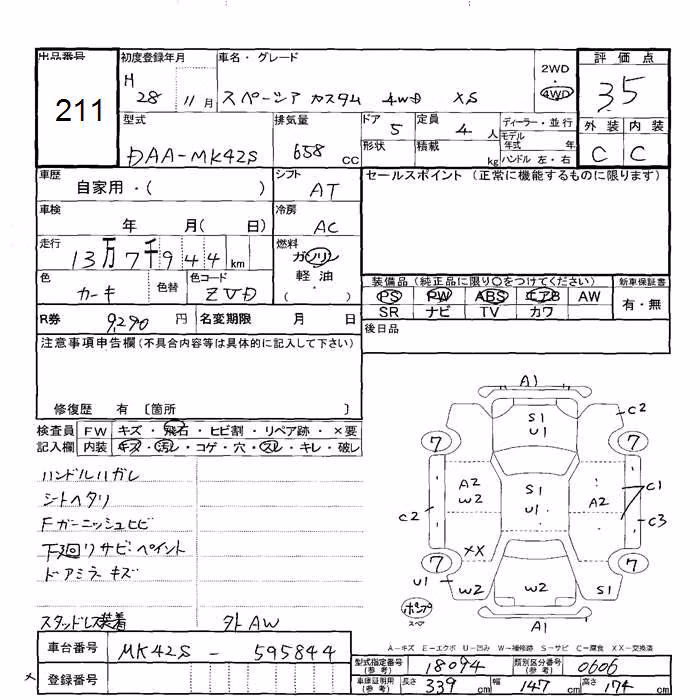 出品番号 初度登録年月 車名・グレード 評価点
211
H 28 11月 スペーシア カスタム 4WD XS
2WD・4WD
3.5
型式 排気量 ドア 5 定員 4 人 ディーラー・並行
モデル年式 年
外装 内装
DAA-MK42S 658 CC 形状 積載 kg ハンドル 左・右
C C
車歴 自家用・( ) シフト AT
セールスポイント(正常に機能するものに限ります)
車検 年 月( 日) 冷房 AC
走行 13万7千944km 燃料 ガソリン
軽油
( ・ )
色 カーキ 色替 色コード ZVD
装備品(純正品に限り○をつけてください) 新車保証書
PS PW ABS エアB AW 有・無
SR ナビ TV カワ
R券 9,290 円 名変期限 月 日
後日品
注意事項申告欄(不具合内容等は具体的に記入して下さい)
修復歴 有 〔箇所 〕
検査員記入欄 FW キズ・飛石・ヒビ割・リペア跡・×要
内装 キズ・汚レ・コゲ・穴・スレ・キレ・破レ
ハンドルハガレ
シートヘタリ
Fガーニッシュヒビ
下廻リサビ・ペイント
ドアミラキズ
スタッドレス装着 外AW
A1
S1 U1 C2
7 7
A2 W2 S1 U1 A2 C1
C2 C3
XX
7 7
U1 W2 W2 S1
ポンプ
スペア
A1
A-キズ E-エクボ U-凹み W-補修跡 S-サビ C-腐食 XX-交換済
車台番号 MK42S - 595844
型式指定番号(参考) 18094 類別区分番号(参考) 0606
登録番号
車庫証明用(参考) 長さ 339cm 幅 147cm 高さ 174cm